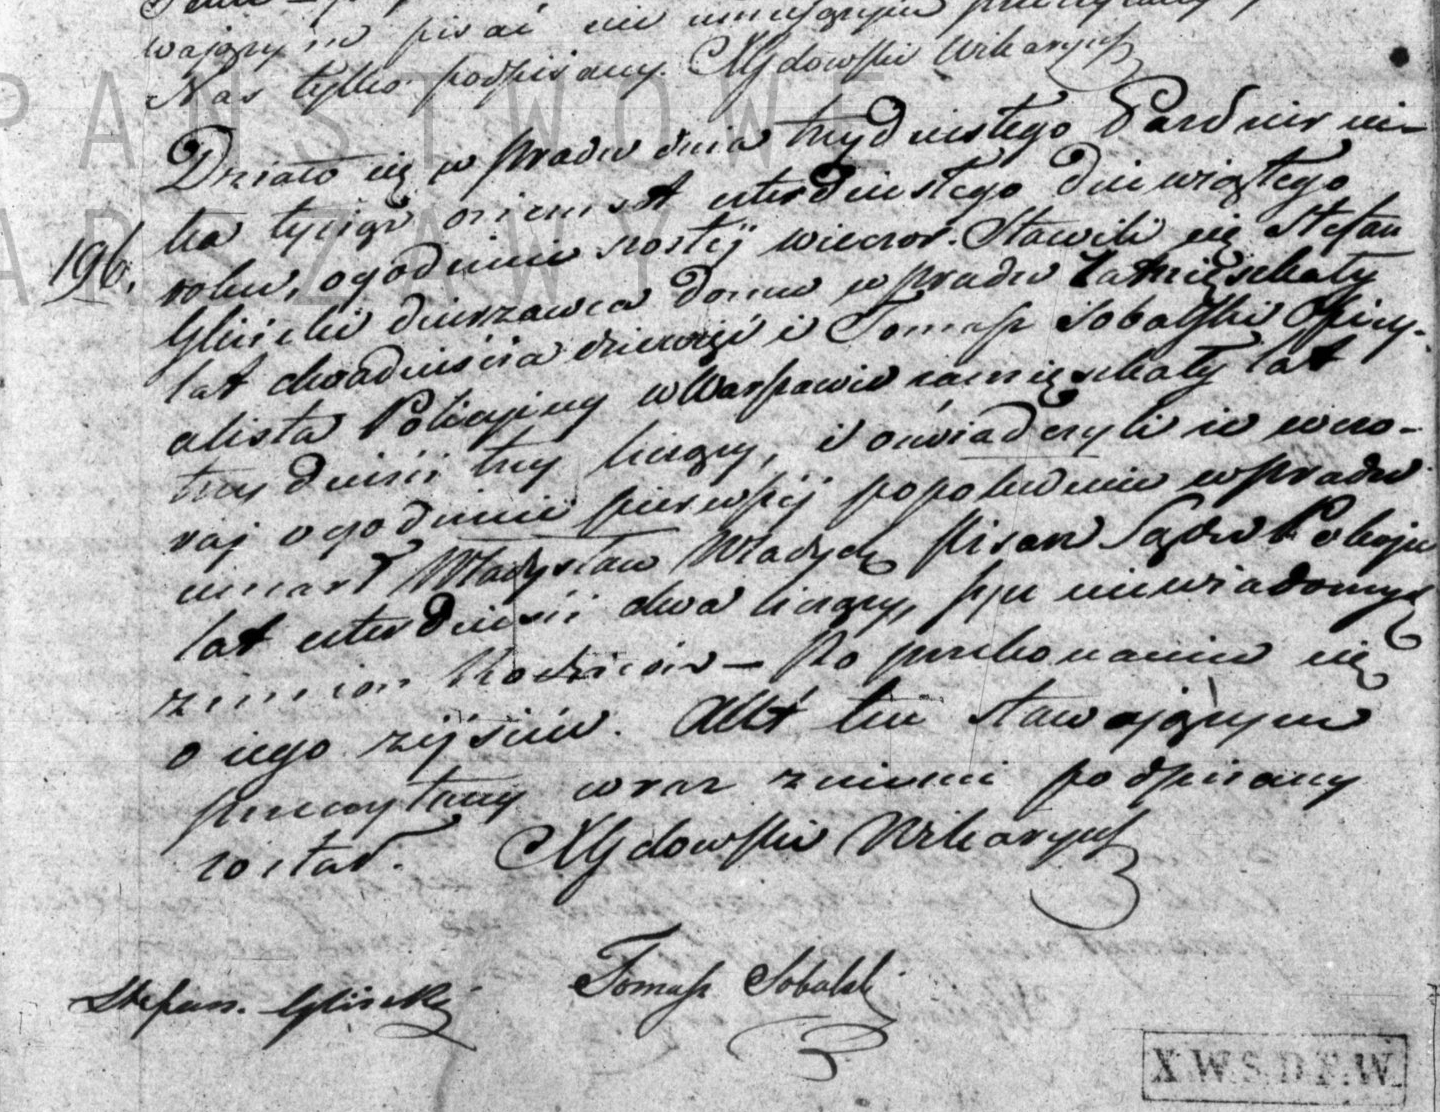 wającym pisać nie umiejącym przeczytany
Nas tylko podpisany. XGdowski Wikaryusz
PAŃSTWOWE
Działo się w Pradze dnia trzydziestego Październi-
ka tysiąc ośmset czterdziestego dziewiątego
ARSZAWY
196. roku, o godzinie szostéj wieczor. Stawili się Stefan
Gliński dzierzawca domu w Pradze Zamięszkały
lat dwadzieścia dziewięć i Tomasz Sobolski Oficy-
alista Policyjny w Warszawie zamięszkały lat
trzydzieści trzy liczący, i oświadczyli iż wczo-
raj o godzinie pierwszéj popołudniu w Pradze
umarł Władysław Pisarz Sądu Pokoju
lat czterdzieści dwa liczący, niewiadomych
z imion Rodziców – Po przekonaniu się
o jego zejściu. Akt ten stawającym
przeczytany wraz z niemi podpisany
został. XGdowski Wikaryusz
Stefan Gliński Tomasz Sobolski
X.W.S.D.F.W.